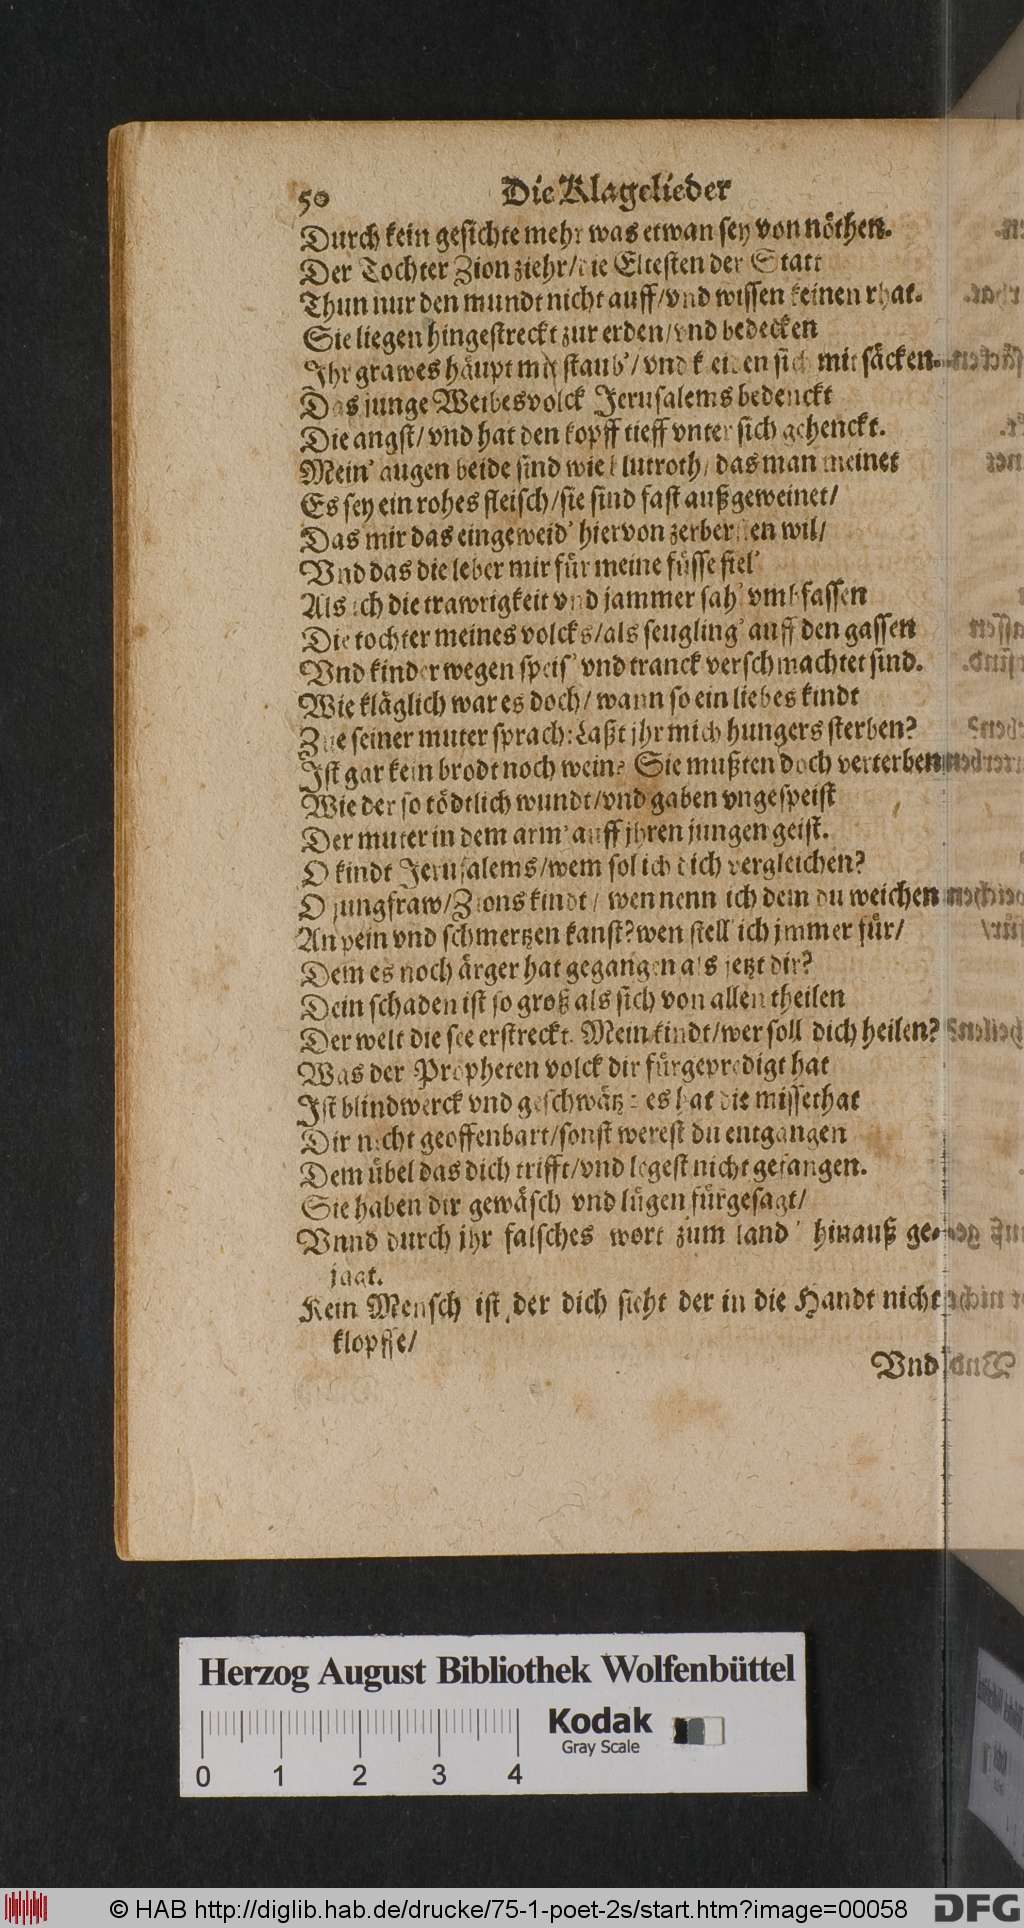 50 Die Klagelieder
Durch kein gesichte mehr was etwan sey von nöthen.
Der Tochter Zion ziehr/die Eltesten der Statt
Thun nur den mundt nicht auff/vnd wissen keinen rhat.
Sie liegen hingestreckt zur erden/vnd bedecken
Ihr grawes häupt mit staub'/vnd kleiden sich mit säcken.
Das junge Weibesvolck Jerusalems bedenckt
Die angst/vnd hat den kopff tieff vnter sich gehenckt.
Mein' augen beide sind wie blutroth/das man meinet
Es sey ein rohes fleisch/sie sind fast außgeweinet/
Das mir das eingeweid' hiervon zerbersten wil/
Vnd das die leber mir für meine füsse fiel'
Als ich die trawrigkeit vnd jammer sah' vmbfassen
Die tochter meines volcks/als seugling' auff den gassen
Vnd kinder wegen speis' vnd tranck verschmachtet sind.
Wie kläglich war es doch/wann so ein liebes kindt
Zue seiner muter sprach: Laßt jhr mich hungers sterben?
Ist gar kein brodt noch wein? Sie mußten doch verterben
Wie der so tödtlich wundt/vnd gaben vngespeist
Der muter in dem arm' auff jhren jungen geist.
O kindt Jerusalems/wem sol ich dich vergleichen?
O jungfraw/Zions kindt/wen nenn ich dem du weichen
An pein vnd schmertzen kanst? wen stell' ich jmmer für/
Dem es noch ärger hat gegangen als jetzt dir?
Dein schaden ist so groß als sich von allen theilen
Der welt die see erstreckt. Mein kindt/wer soll dich heilen?
Was der Propheten volck dir fürgepredigt hat
Ist blindwerck vnd geschwätz: es hat die missethat
Dir nicht geoffenbart/sonst werest du entgangen
Dem übel das dich trifft/vnd legest nicht gefangen.
Sie haben dir gewäsch vnd lügen fürgesagt/
Vnnd durch jhr falsches wort zum land' hinauß ge-
jagt.
Kein Mensch ist der dich sieht der in die Handt nicht
klopffe/
Vnd
Herzog August Bibliothek Wolfenbüttel
Kodak
Gray Scale
0 1 2 3 4
© HAB http://diglib.hab.de/drucke/75-1-poet-2s/start.htm?image=00058
DFG